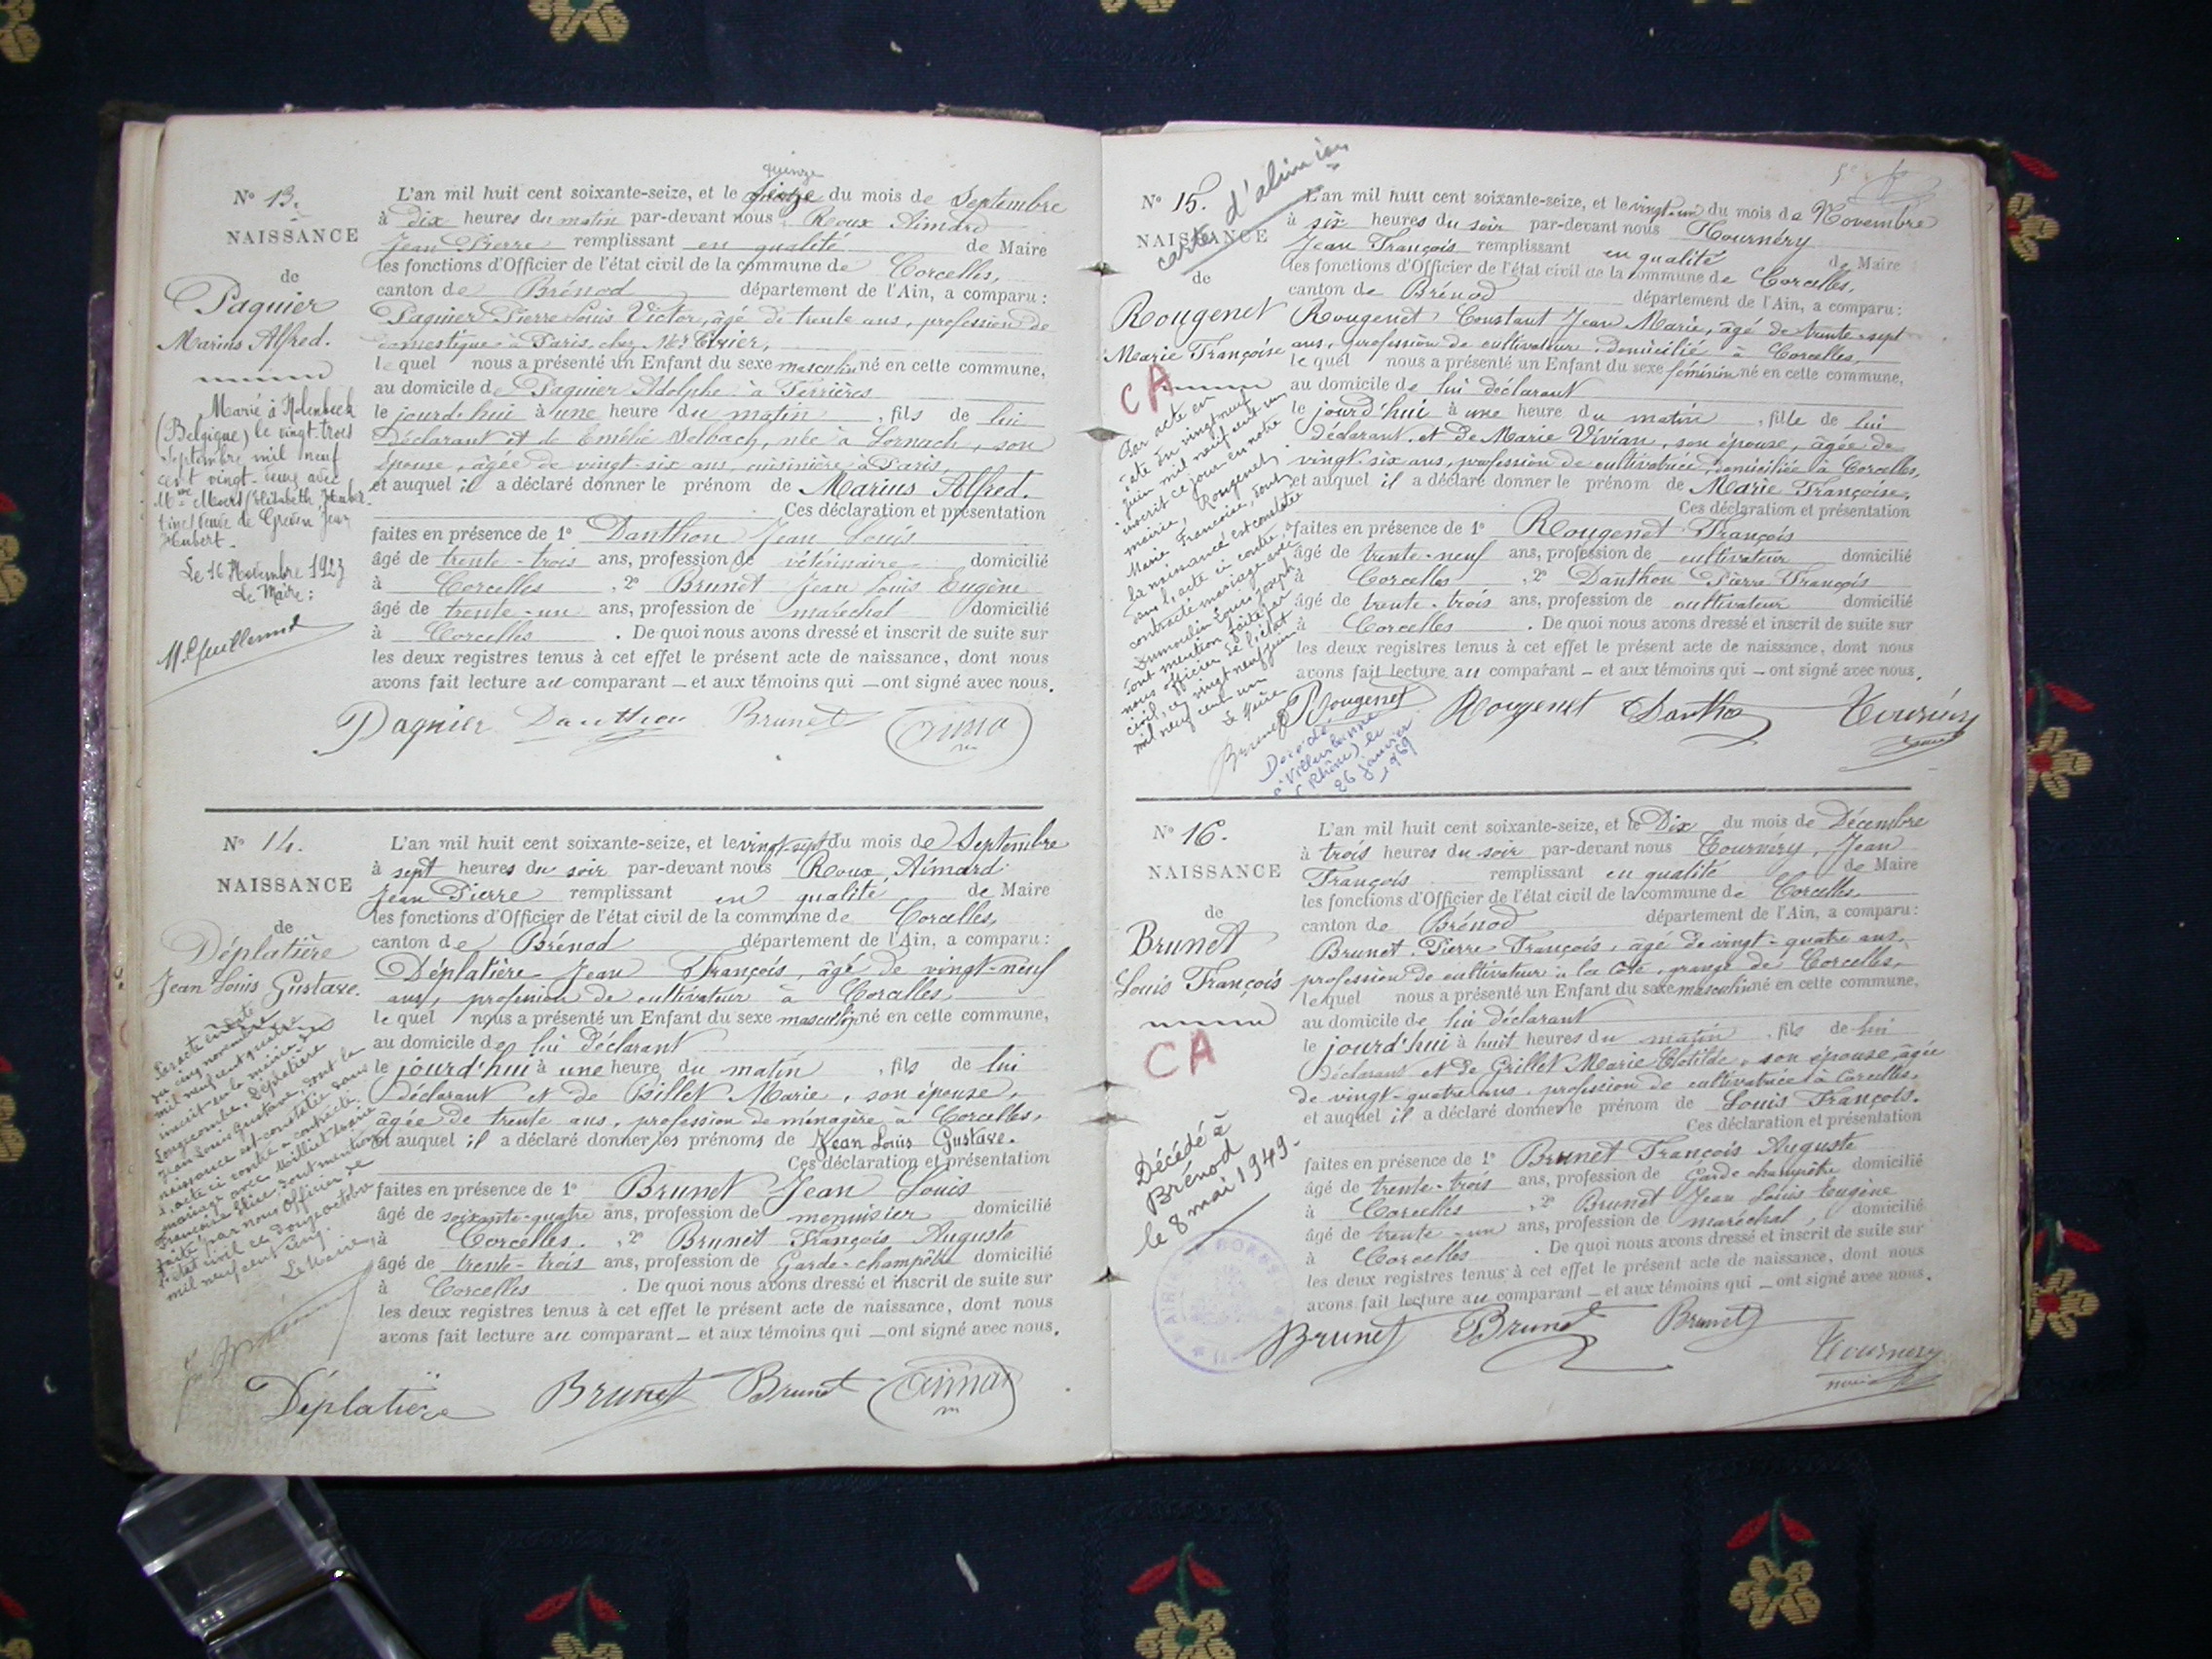 N° 13.
NAISSANCE
de
Paquier
Marius Alfred.
Marié à Molenbeek
(Belgique) le vingt-trois
Septembre mil neuf
cent vingt-deux avec
Elisabeth
veuve de Jean
Hubert.
Le 16 Novembre 1923
Le Maire:
quinze
L'an mil huit cent soixante-seize, et le seize du mois de Septembre
à dix heures du matin par-devant nous Roux Aimard
Jean Pierre remplissant en qualité de Maire
les fonctions d'Officier de l'état civil de la commune de Corcelles,
canton de Brénod département de l'Ain, a comparu:
Paquier Pierre Louis Victor, âgé de trente ans, profession de
domestique à Paris, chez Mr
le quel nous a présenté un Enfant du sexe masculin né en cette commune,
au domicile de Paquier Adolphe à Ferrières
le jourd'hui à une heure du matin, fils de lui
Déclarant et de Emélie Selbach, née à Sornach, son
épouse, âgée de vingt-six ans, cuisinière à Paris,
et auquel il a déclaré donner le prénom de Marius Alfred.
Ces déclaration et présentation
faites en présence de 1° Danthon Jean Louis
âgé de trente-trois ans, profession de vétérinaire domicilié
à Corcelles, 2° Brunet Jean Louis Eugène
âgé de trente-un ans, profession de maréchal domicilié
à Corcelles. De quoi nous avons dressé et inscrit de suite sur
les deux registres tenus à cet effet le présent acte de naissance, dont nous
avons fait lecture au comparant – et aux témoins qui – ont signé avec nous.
Paquier Danthon Brunet Aimard
N° 14.
NAISSANCE
de
Déplatière
Jean Louis Gustave.
Par acte en date
du cinq novembre
mil neuf cent quatre
inscrit en la mairie de
Longecombe, Déplatière
Jean Louis Gustave, dont la
naissance est constatée dans
l'acte ci contre a contracté
mariage avec Millet Marie
Françoise Elise, dont mention
faite par nous Officier de
l'état civil ce douze octobre
mil neuf cent cinq.
Le Maire,
L'an mil huit cent soixante-seize, et le vingt-sept du mois de Septembre
à sept heures du soir par-devant nous Roux Aimard
Jean Pierre remplissant en qualité de Maire
les fonctions d'Officier de l'état civil de la commune de Corcelles,
canton de Brénod département de l'Ain, a comparu:
Déplatière Jean François, âgé de vingt-neuf
ans, profession de cultivateur à Corcelles
le quel nous a présenté un Enfant du sexe masculin né en cette commune,
au domicile de lui déclarant
le jourd'hui à une heure du matin, fils de lui
déclarant et de Billet Marie, son épouse,
âgée de trente ans, profession de ménagère à Corcelles,
et auquel il a déclaré donner les prénoms de Jean Louis Gustave.
Ces déclaration et présentation
faites en présence de 1° Brunet Jean Louis
âgé de soixante-quatre ans, profession de menuisier domicilié
à Corcelles. , 2° Brunet François Auguste
âgé de trente-trois ans, profession de Garde-champêtre domicilié
à Corcelles. De quoi nous avons dressé et inscrit de suite sur
les deux registres tenus à cet effet le présent acte de naissance, dont nous
avons fait lecture au comparant – et aux témoins qui – ont signé avec nous.
Déplatière Brunet Brunet Aimard
5e
carte d'alim
N° 15.
NAISSANCE
de
Rougenet
Marie Françoise
CA
Par acte en
date du vingt neuf
juin mil neuf cent un
inscrit ce jour en notre
mairie, Rougenet
Marie Françoise, dont
la naissance est constatée
dans l'acte ci contre, a
contracté mariage avec
Dumoulin Louis Joseph
dont mention faite par
nous officier de l'état
civil, ce vingt neuf juin
mil neuf cent un
Le Maire
Brunet
Décédée
à Villeurbanne
(Rhône) le
26 janvier
1969
L'an mil huit cent soixante-seize, et le vingt-un du mois de Novembre
à six heures du soir par-devant nous Tournéry
Jean François remplissant en qualité de Maire
les fonctions d'Officier de l'état civil de la commune de Corcelles,
canton de Brénod département de l'Ain, a comparu:
Rougenet Constant Jean Marie, âgé de trente-sept
ans, profession de cultivateur, domicilié à Corcelles,
le quel nous a présenté un Enfant du sexe féminin né en cette commune,
au domicile de lui déclarant
le jourd'hui à une heure du matin, fille de lui
déclarant, et de Marie Vivian, son épouse, âgée de
vingt-six ans, profession de cultivatrice, domiciliée à Corcelles,
et auquel il a déclaré donner le prénom de Marie Françoise,
Ces déclaration et présentation
faites en présence de 1° Rougenet François
âgé de trente-neuf ans, profession de cultivateur domicilié
à Corcelles, 2° Danthon Pierre François
âgé de trente-trois ans, profession de cultivateur domicilié
à Corcelles. De quoi nous avons dressé et inscrit de suite sur
les deux registres tenus à cet effet le présent acte de naissance, dont nous
avons fait lecture au comparant – et aux témoins qui – ont signé avec nous.
Rougenet Rougenet Dantho Tournéry
N° 16.
NAISSANCE
de
Brunet
Louis François
CA
Décédé à
Brénod
le 8 mai 1949.
L'an mil huit cent soixante-seize, et le Dix du mois de Décembre
à trois heures du soir par-devant nous Tournéry, Jean
François remplissant en qualité de Maire
les fonctions d'Officier de l'état civil de la commune de Corcelles,
canton de Brénod département de l'Ain, a comparu:
Brunet Pierre François, âgé de vingt-quatre ans,
profession de cultivateur à la Côte, grange de Corcelles,
le quel nous a présenté un Enfant du sexe masculin né en cette commune,
au domicile de lui déclarant
le jourd'hui à huit heures du matin, fils de lui
déclarant et de Grillet Marie Clotilde, son épouse, âgée
de vingt-quatre ans, profession de cultivatrice à Corcelles,
et auquel il a déclaré donner le prénom de Louis François.
Ces déclaration et présentation
faites en présence de 1° Brunet François Auguste
âgé de trente-trois ans, profession de Garde champêtre domicilié
à Corcelles, 2° Brunet Jean Louis Eugène
âgé de trente-un ans, profession de maréchal, domicilié
à Corcelles. De quoi nous avons dressé et inscrit de suite sur
les deux registres tenus à cet effet le présent acte de naissance, dont nous
avons fait lecture au comparant – et aux témoins qui – ont signé avec nous.
Brunet Brunet Brunet Tournery